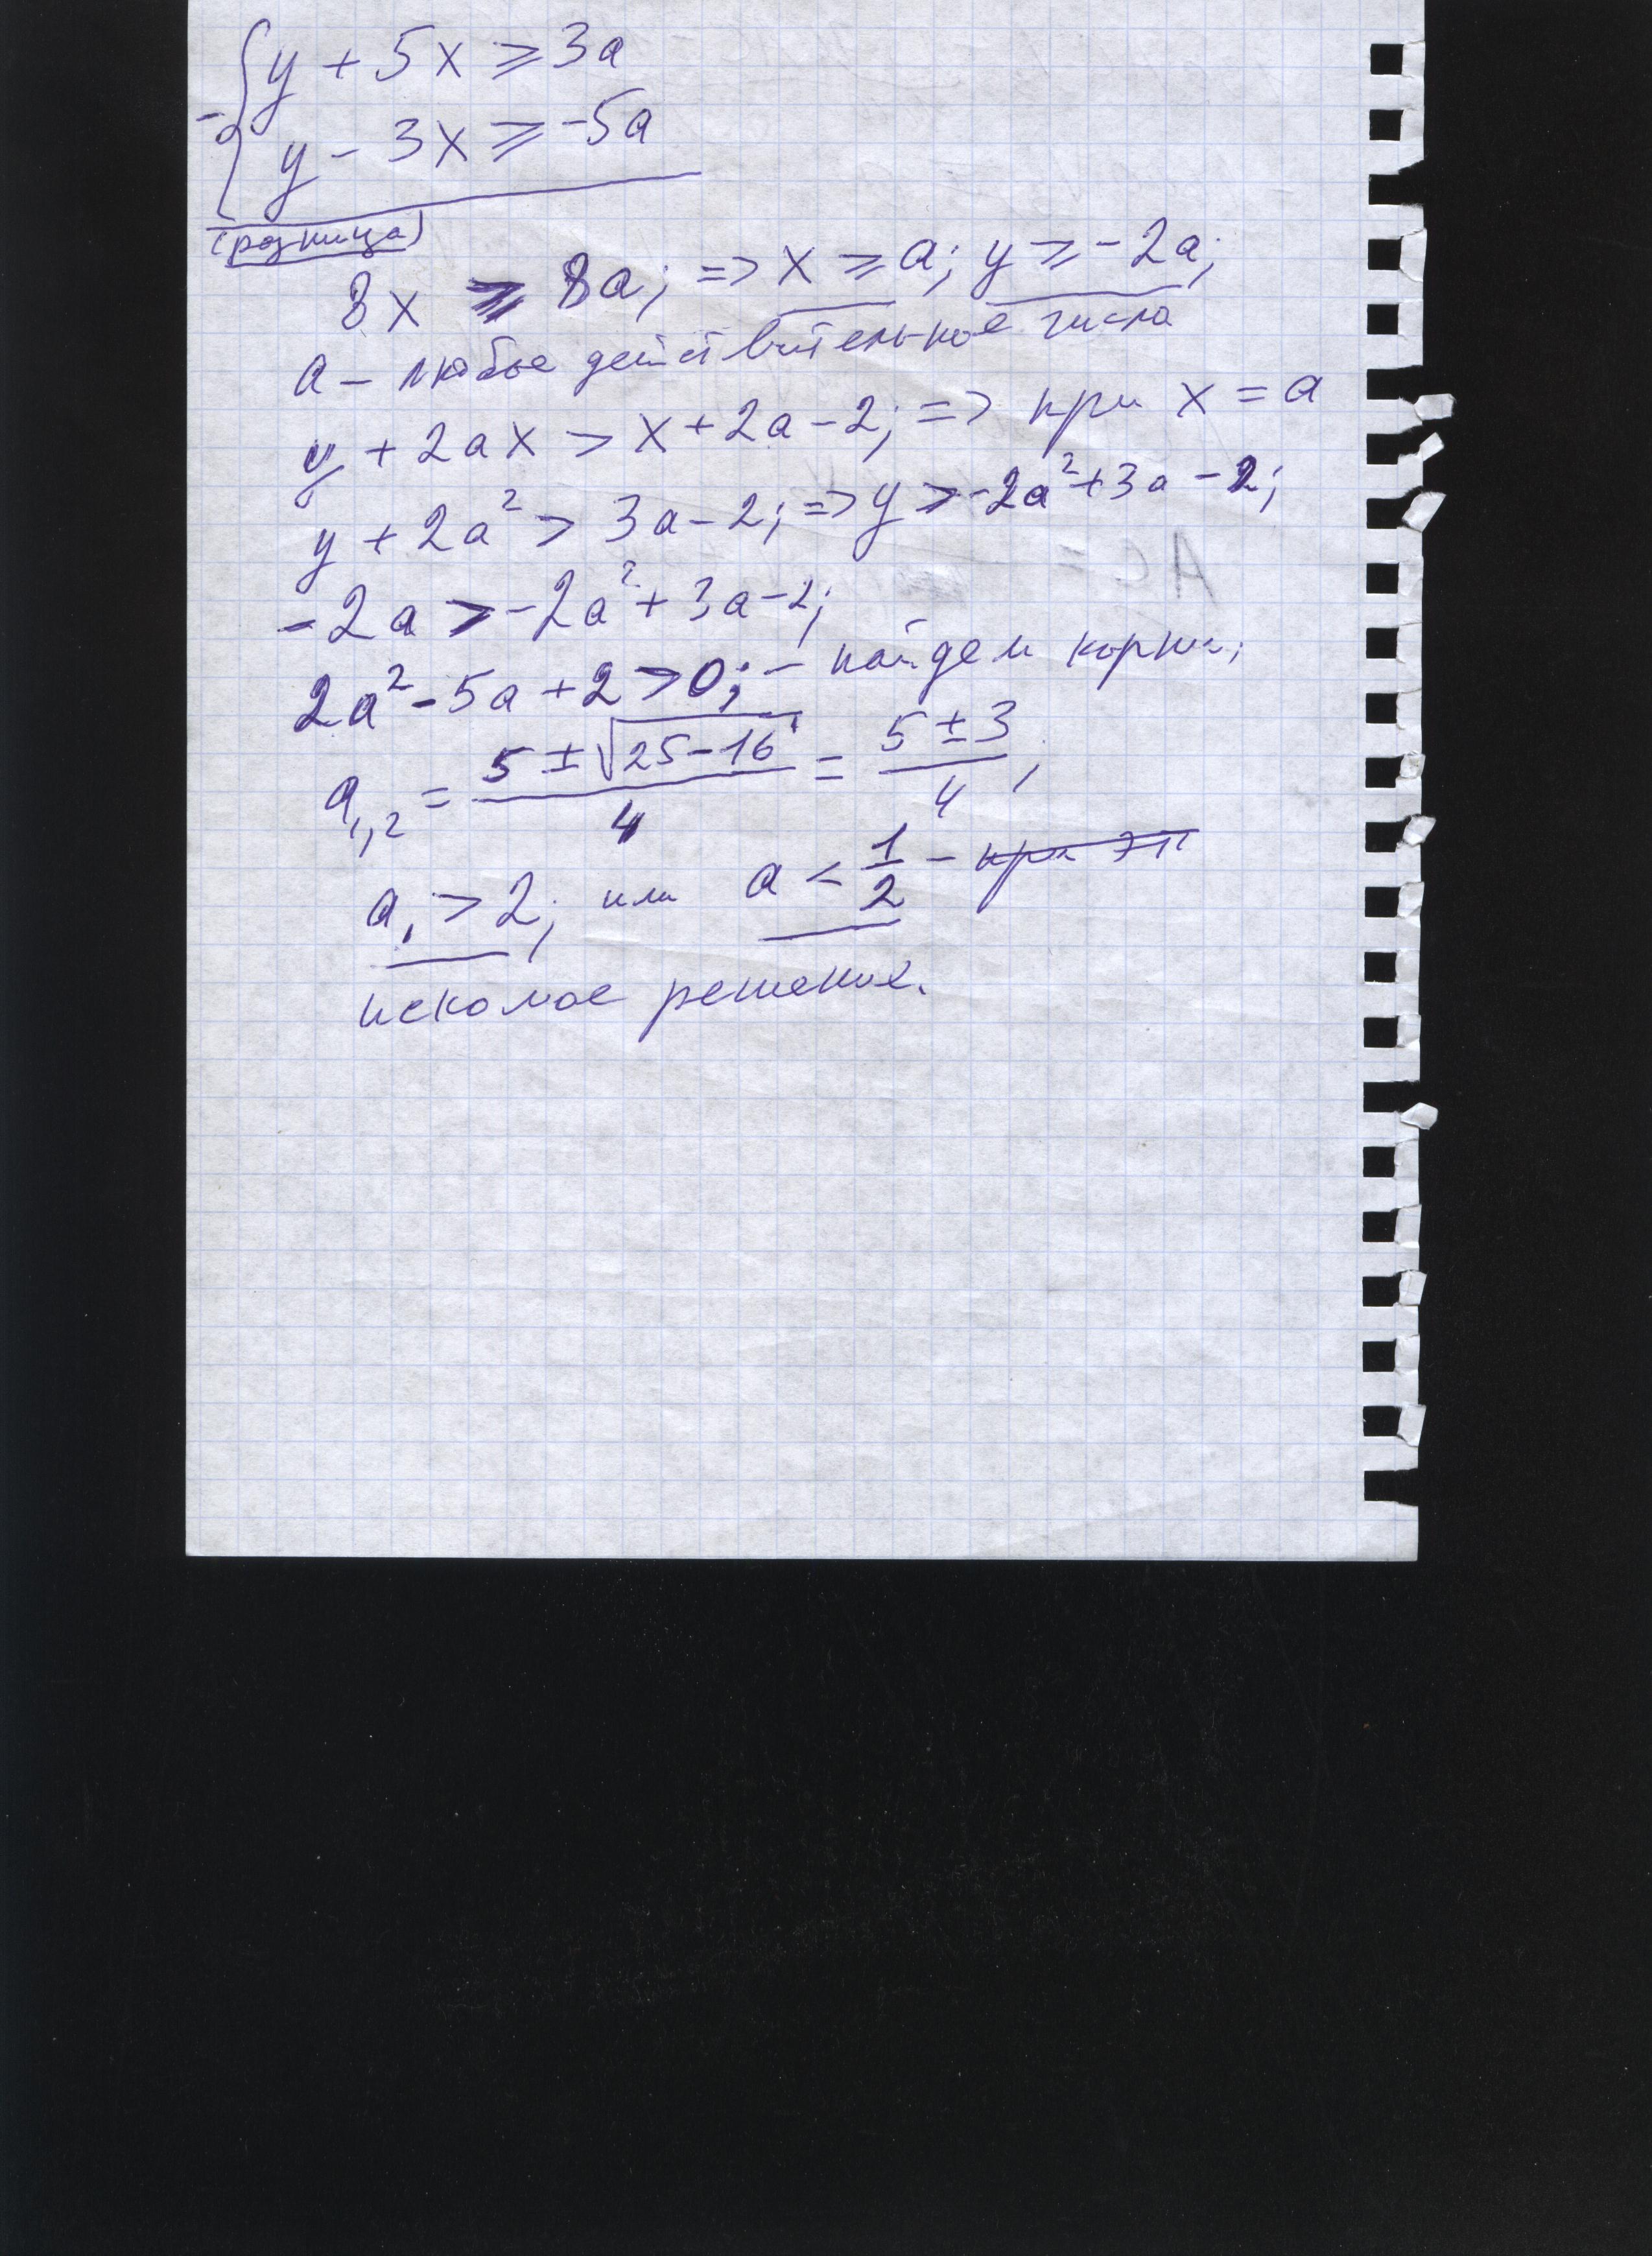 y + 5x ⩾ 3a
- y - 3x ⩾ -5a
(разница)
8x ⩾ 8a; => x ⩾ a; y ⩾ -2a;
a - любое действительное число
y + 2ax > x + 2a - 2; => при x = a
y + 2a² > 3a - 2; => y > -2a² + 3a - 2;
-2a > -2a² + 3a - 2;
2a² - 5a + 2 > 0; - найдем корни;
a₁,₂ = (5 ± √(25 - 16))/4 = (5 ± 3)/4;
a₁ > 2; или a < 1/2 -
искомое решение.